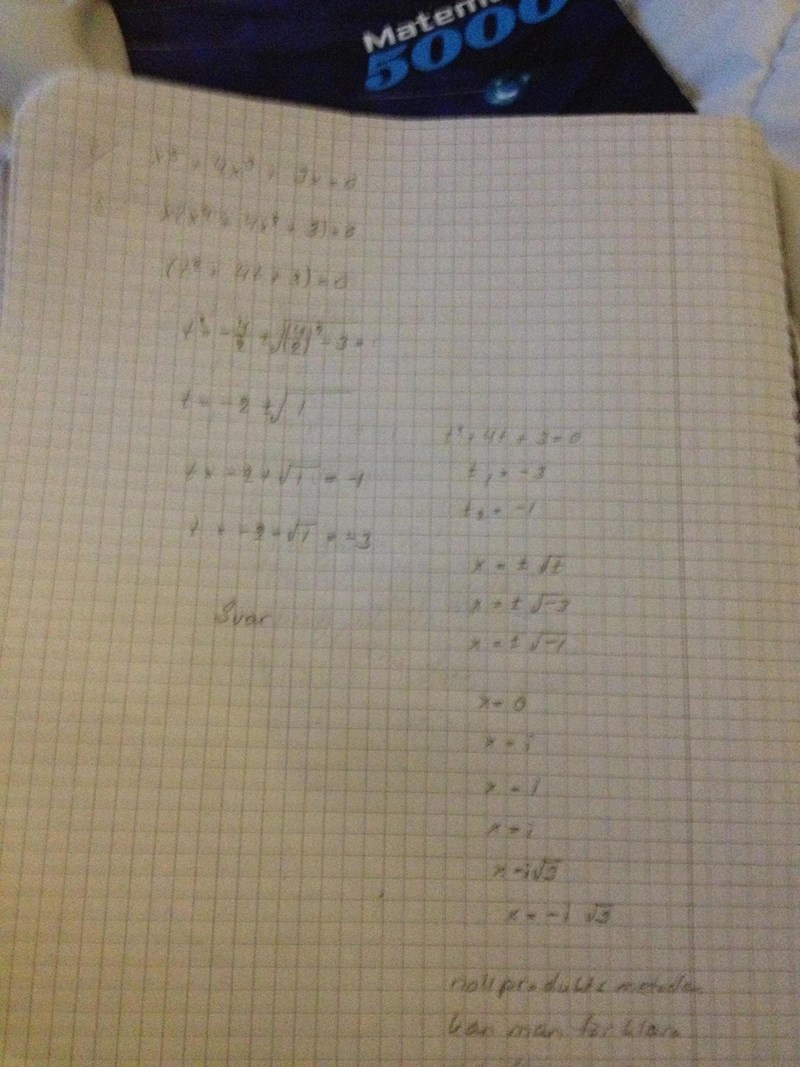 Matem
5000
x⁵ + 4x³ + 3x = 0
x(x⁴ + 4x² + 3) = 0
(t² + 4t + 3) = 0
t = -4/2 ± √((4/2)² - 3 =
t = -2 ± √1
t = -2 + √1 = -1
t = -2 - √1 = -3
Svar
t² + 4t + 3 = 0
t₁ = -3
t₂ = -1
x = ± √t
x = ± √-3
x = ± √-1
x = 0
x = i
x = i
x = i
x = i√3
x = -i √3
nollproduktsmetoden
kan man förklara